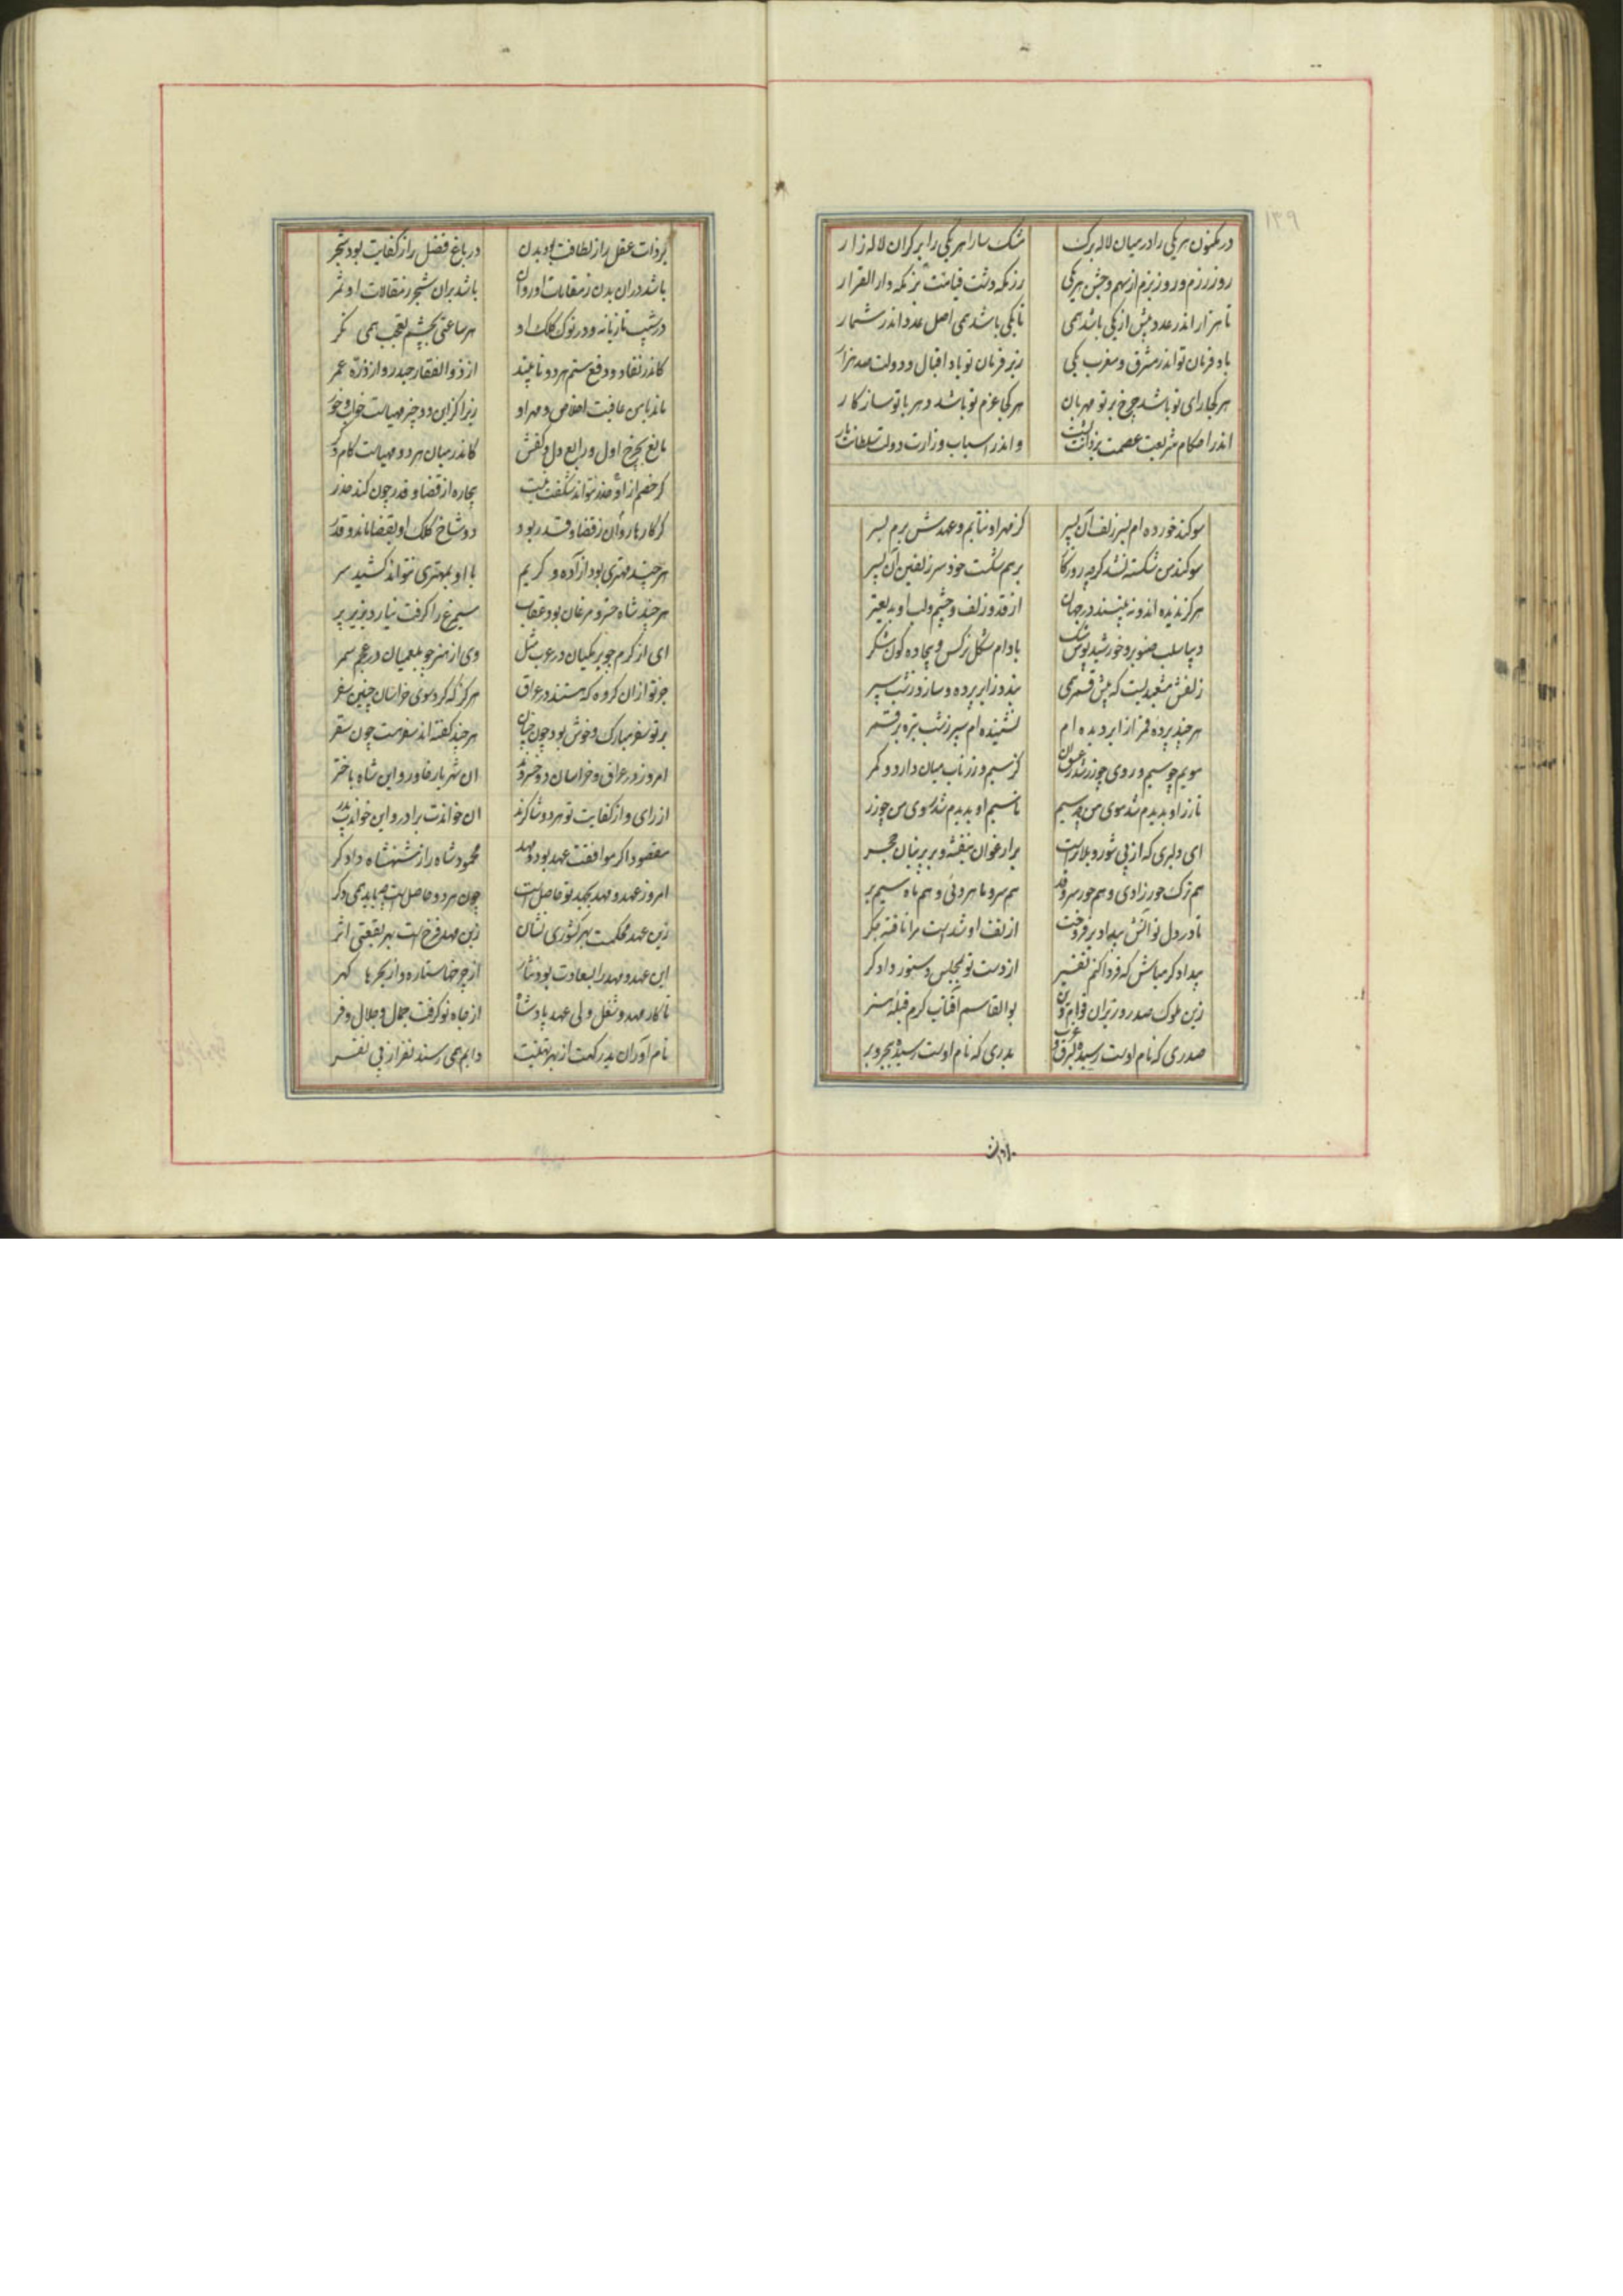 ۱۳۹
در مکنون هر یکی را در میان لاله برک مشک سارا هر یکی را بر کران لاله زار
روز رزم و روز بزم از سهم و جشن هر یکی رزمکه دشت قیامت بزمکه دار القرار
تا هزار اندر عدد بیش از یکی باشد همی تا یکی باشد همی اصل عدد اندر شمار
باد فرمان تو اندر مشرق و مغرب یکی زیر فرمان تو باد اقبال و دولت صد هزار
هر کجا رای تو باشد چرخ بر تو مهربان هر کجا عزم تو باشد دهر با تو سازکار
اندر احکام شریعت عصمت یزدانت پشت و اندر اسباب وزارت دولت سلطانت یار
سوکند خورده ام بسر زلف آن پسر کز مهر او نتابم و عهدش برم بسر
سوکند من شکسته نشد کر چه روزکار بر هم شکست خود سر زلفین آن پسر
هرکز ندیده اند و نه بینند در جهان از قد و زلف و چشم و لب او بدیعتر
دیبا سلب صنوبر و خورشید پوش مشک بادام شکل نرکس و بیجاده کون شکر
زلفش مشعبدیست که پیش قمر همی بندد ز ابر پرده و سازد ز شب سپر
هر چند پرده قمر از ابر دیده ام نشنیده ام سپر ز شب تیره بر قمر
مویم چو سیم و روی چو زر شد ز عشق آن کز سیم و زر ناب میان دارد و کمر
تا زر او بدیدم شد موی من چو سیم تا سیم او بدیدم شد روی من چو زر
ای دلبری که از پی شور و بلا تراست بر ارغوان بنفشه و بر پرنیان حجر
هم ترک حورزادی و هم حور سرو قد هم سرو ماهروئی و هم ماه سیم بر
تا در دل تو آتش بیداد بر فروخت از تف او شدست مرا تافته جکر
بیدادکر مباش که فردا کنم نفیر از دست تو بمجلس دستور دادکر
زین ملوک صدر وزیران قوام دین بوالقاسم آفتاب کرم قبله هنر
صدری که نام اوست رسیده بشرق و غرب بدری که نام اوست رسیده ببحر و بر
بر ذات عقل را ز لطافت بود بدن در باغ فضل را ز کفایت بود شجر
باشد در ان بدن ز مقامات او روان باشد بران شجر ز مقالات او ثمر
در شیب تازیانه و در نوک کلک او هر ساعتی بچشم تعجب همی نکر
کاندر نفاذ و دفع ستم هر دو نایبند از ذوالفقار حیدر و از ذره عمر
ماند بامن عافیت اخلاص و مهر او زیرا کزین دو چیز مهیاست خواب و خور
مانع بچرخ اول و رابع دل و کفش کاندر میان هر دو مهیاست کام و
کر خصم ازو حذر نتواند شکفت نیست بیچاره از قضا و قدر چون کند حذر
کر کارها روان ز قضا و قدر بود دو شاخ کلک او بقضا ماند و قدر
هر چند مهتری بود آزاده و کریم با او بمهتری نتواند کشید سر
هر چند شاه خسرو مرغان بود عقاب سیمرغ را کرفت نیارد بزیر پر
ای از کرم چو برمکیان در عرب مثل وی از هنر چو بلعمیان در عجم سمر
چو تو از ان کروه که هستند در عراق هرکز که کرد سوی خراسان چنین سفر
بر تو سفر مبارک و خوش بود چون جنان هر چند کفته اند سفر هست چون سقر
امروز در عراق و خراسان دو خسروند ان شهریار خاور و این شاه باختر
از رای و از کفایت تو هر دو شاکرند ان خواندت برادر و این خواندت پدر
مقصود اکر موافقت عهد بود و مهد محمود شاه را ز شهنشاه دادکر
امروز عهد و مهد بجهد تو حاصل است چون هر دو حاصل است چه باید همی دکر
زین عهد محکمست بهر کشوری نشان زین مهد فرخ است بهر بقعتی اثر
این عهد و مهد را بسعادت بود نثار از چرخها ستاره و از بحرها کهر
تا کار مهد و شغل ولی عهد پادشاه از جاه تو کرفت جمال و جلال و فر
نام اوران بدر کهت از بهر تهنیت دایم همی رسند نفر از پی نفر